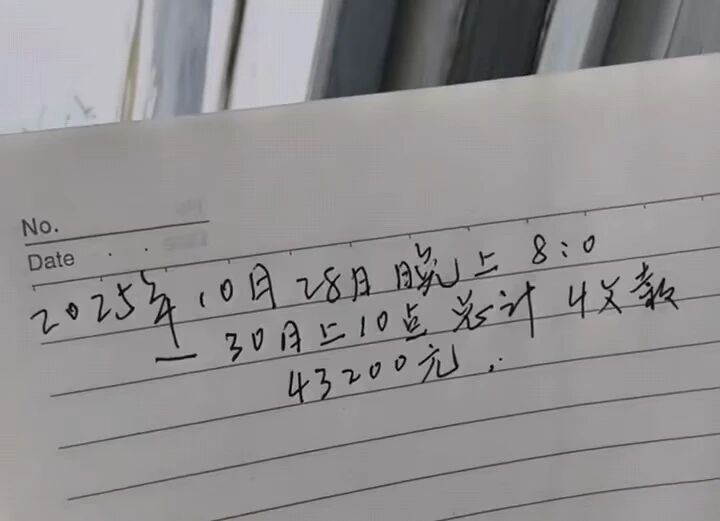 No.
Date
2025年10月28日晚上8:0
— 30日上10点总计收款
43200元.